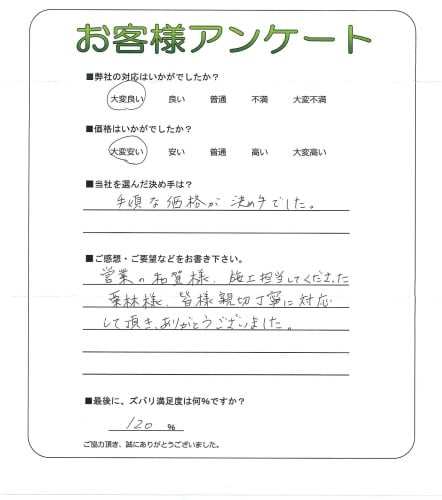 お客様アンケート
■弊社の対応はいかがでしたか？
大変良い 良い 普通 不満 大変不満
■価格はいかがでしたか？
大変安い 安い 普通 高い 大変高い
■当社を選んだ決め手は？
手頃な価格が決め手でした。
■ご感想・ご要望などをお書き下さい。
営業の 様、施工担当してくださった
栗林様、皆様親切丁寧に対応
して頂き、ありがとうございました。
■最後に、ズバリ満足度は何％ですか？
120 ％
ご協力頂き、誠にありがとうございました。